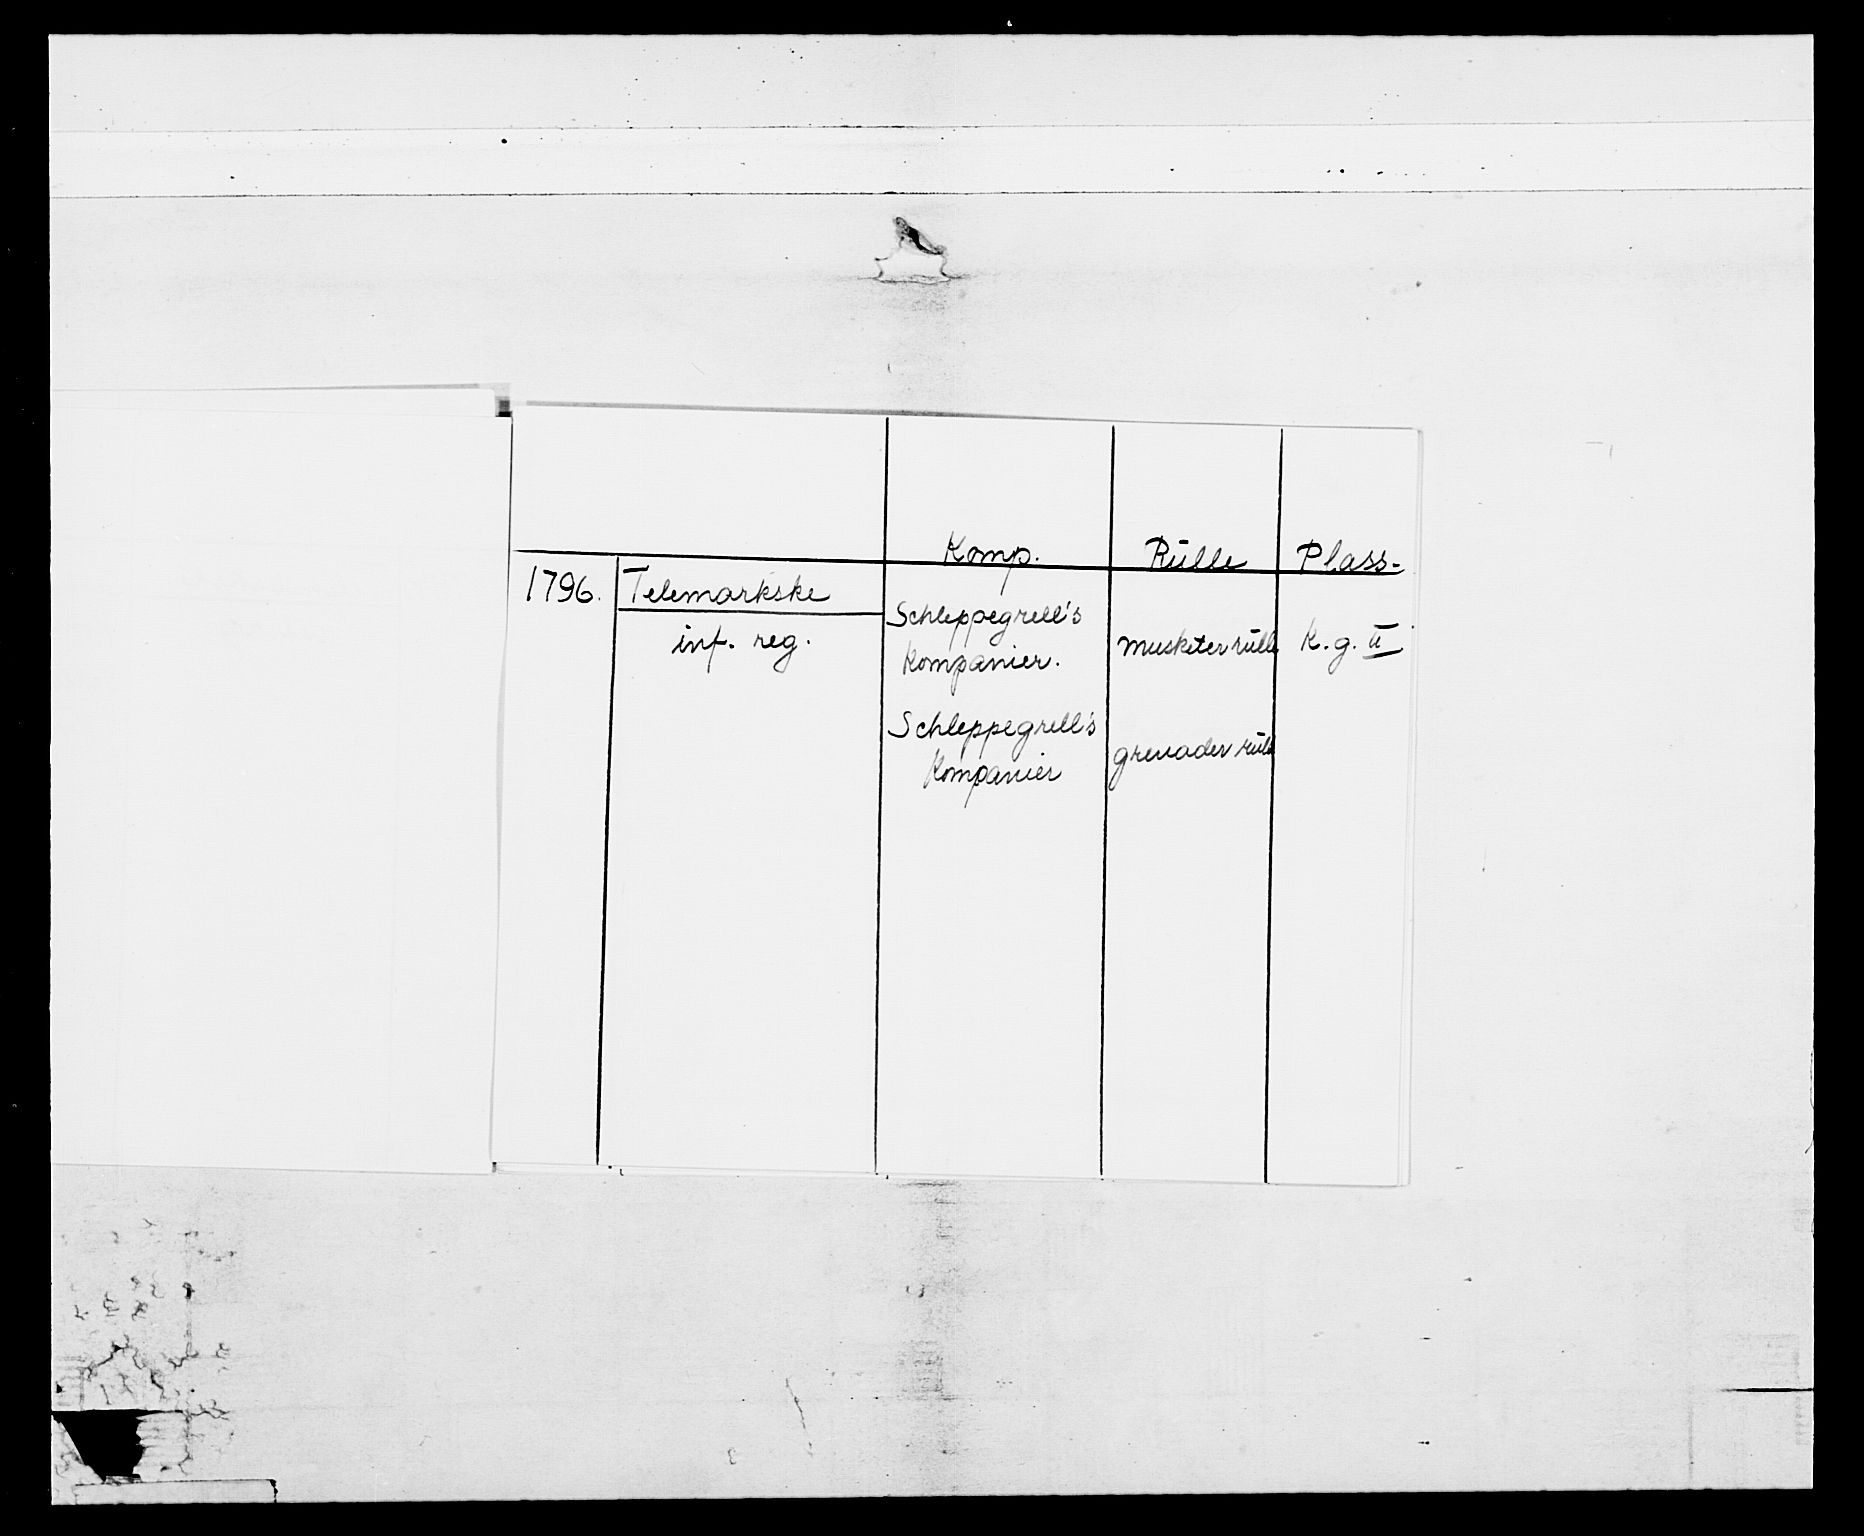 Komp. Rülle Plass-
1796. Telemarkske
inf. reg.
Schleppegrell's
Kompanier. musketer rülle K.g. II
Schleppegrell's
Kompanier grenader rülle